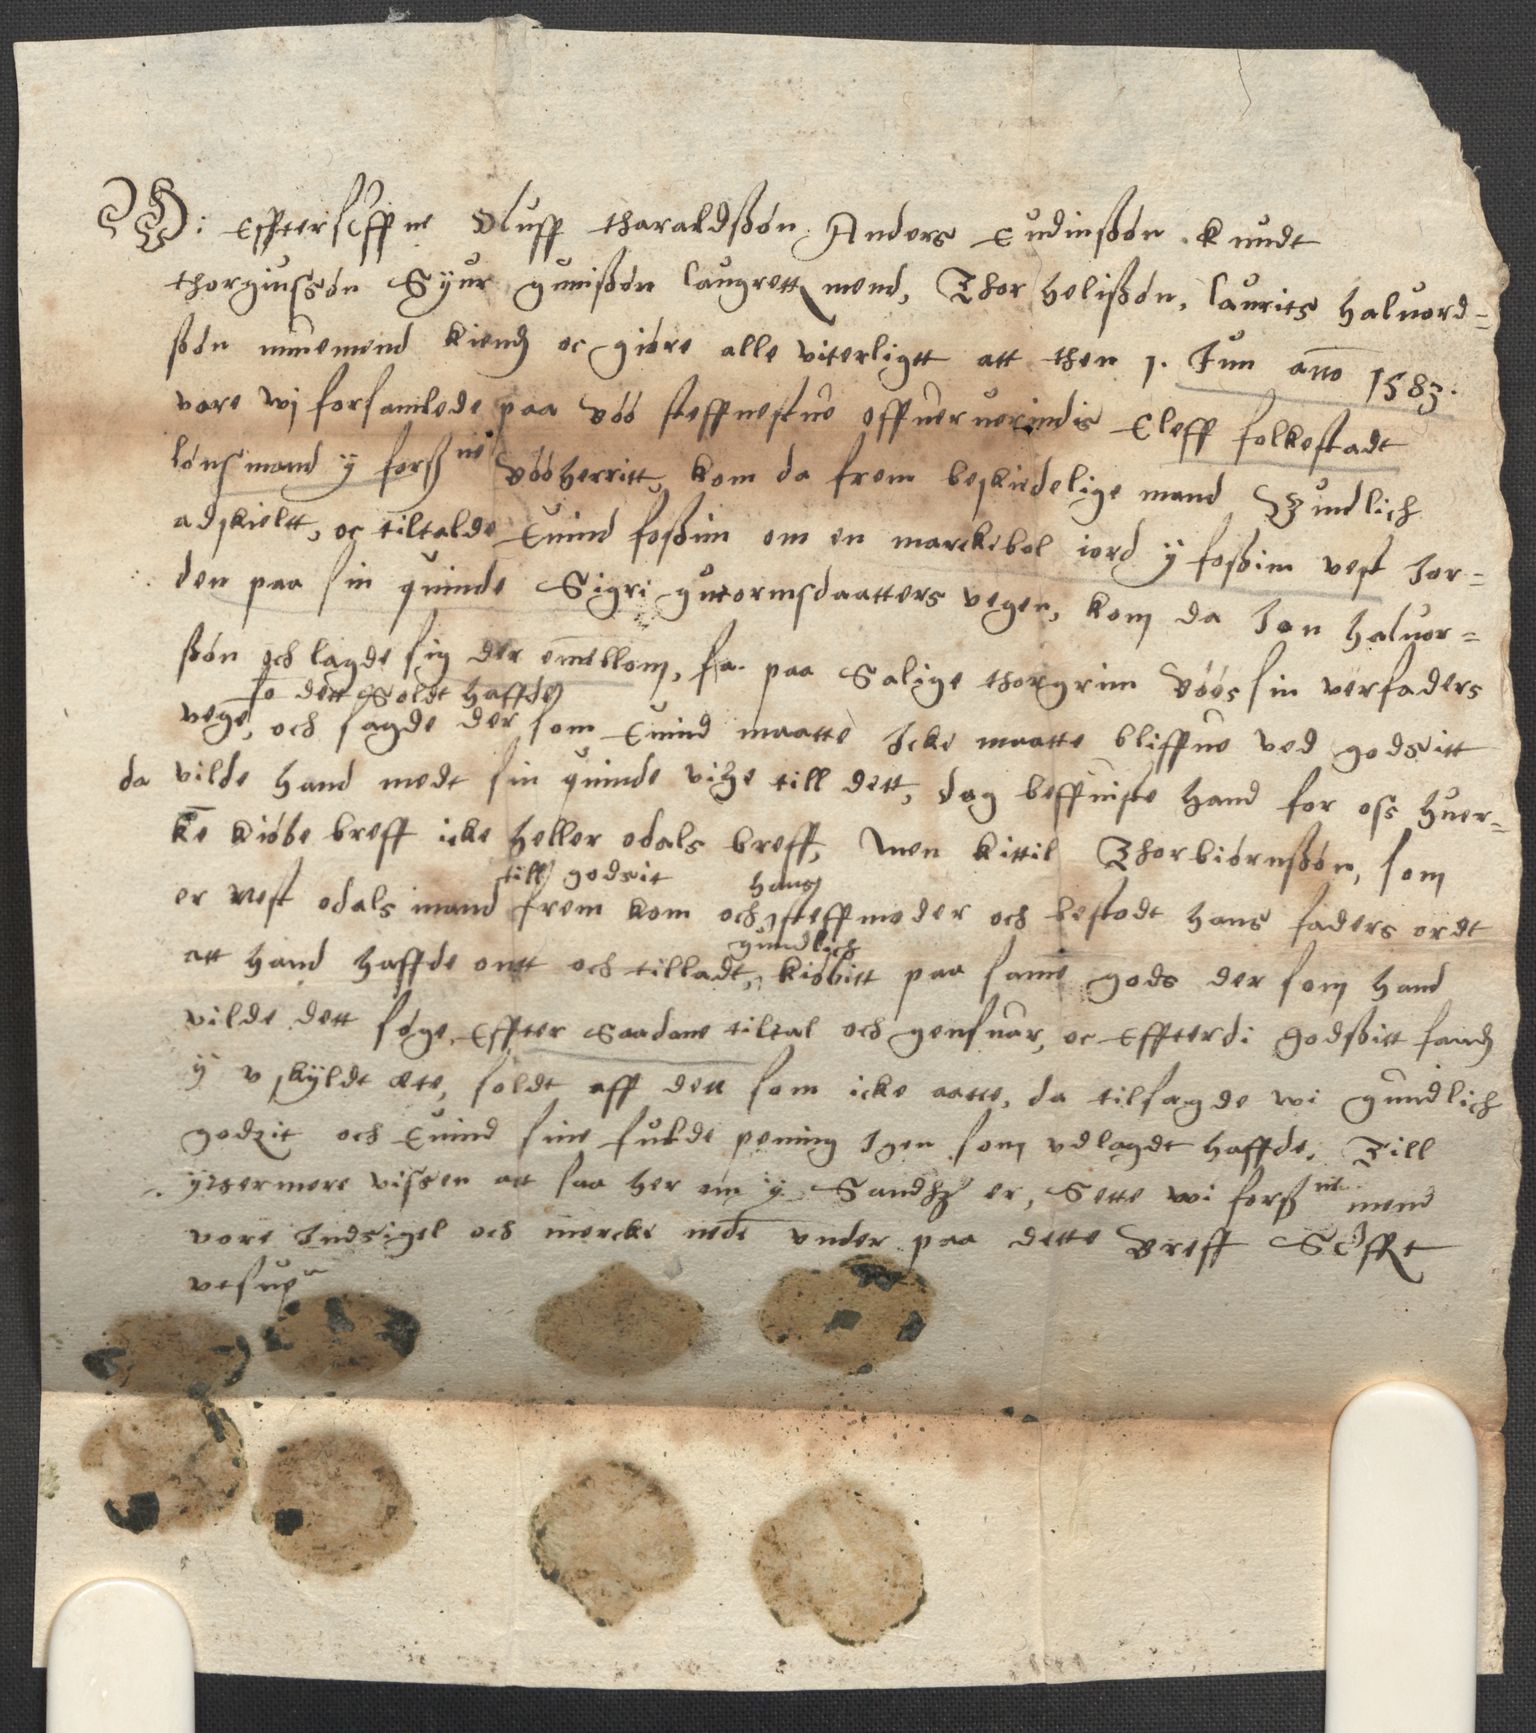 Wi: Effterscffne Oluff tharaldßøn. Anders Eudinßøn. Knudt
thorgiusßøn Syur gunißøn laugrett mend, Thor helißøn, laurits haluord=
ßøn mnemend kiend oc giøre alle viterligtt att then 1. Jun anno 1583.
vore wj forsamlede paa Bøø steffnestue offueruerindis Eleff folkestadt
lønsmand y forßne Bøøherritt, kom da frem beskiedelige mand Gundlich
adskieltt, oc tiltalde Euind foßim om en marckebol iord y foßim vest Jor=
den paa sin quinde Sigri gutormsdaatters vegen, kom da Jon haluor=
ßøn och lagde sig der emellom, sa. paa Salige thorgrim Bøøs sin verfaders
so dett soldt haffde
vegne, och sagde der som Euind maatte Icke maatte bliffue ved godsitt
da vilde hand medt sin quinde vitze till dett, dog beffuiste hand for oss huer=
ke kiøbe breff icke heller odals breff, Men kittil Thorbiørnßøn, som
till godsit hans
er nest odals mand frem kom och steffmoder och bestodt hans faders ordt
gundlich
att hand haffde ontt och tilladt, kiøbitt paa same gods der som hand
vilde dett søge, Effter saadane tiltal och gensuar, oc Effterdi godßitt fand
y vskyldt æte, soldt aff dett som icke aatte, da tilsagde wi gundlich
godzit och Euind sine fulde pening Igen som vdlagdt haffde. Till
ydermere vissen att saa her om y Sandhz er, Sette wi forßne mend
vore Indsigel och mercke nede vnder paa dette Breff Scffit
vtsup